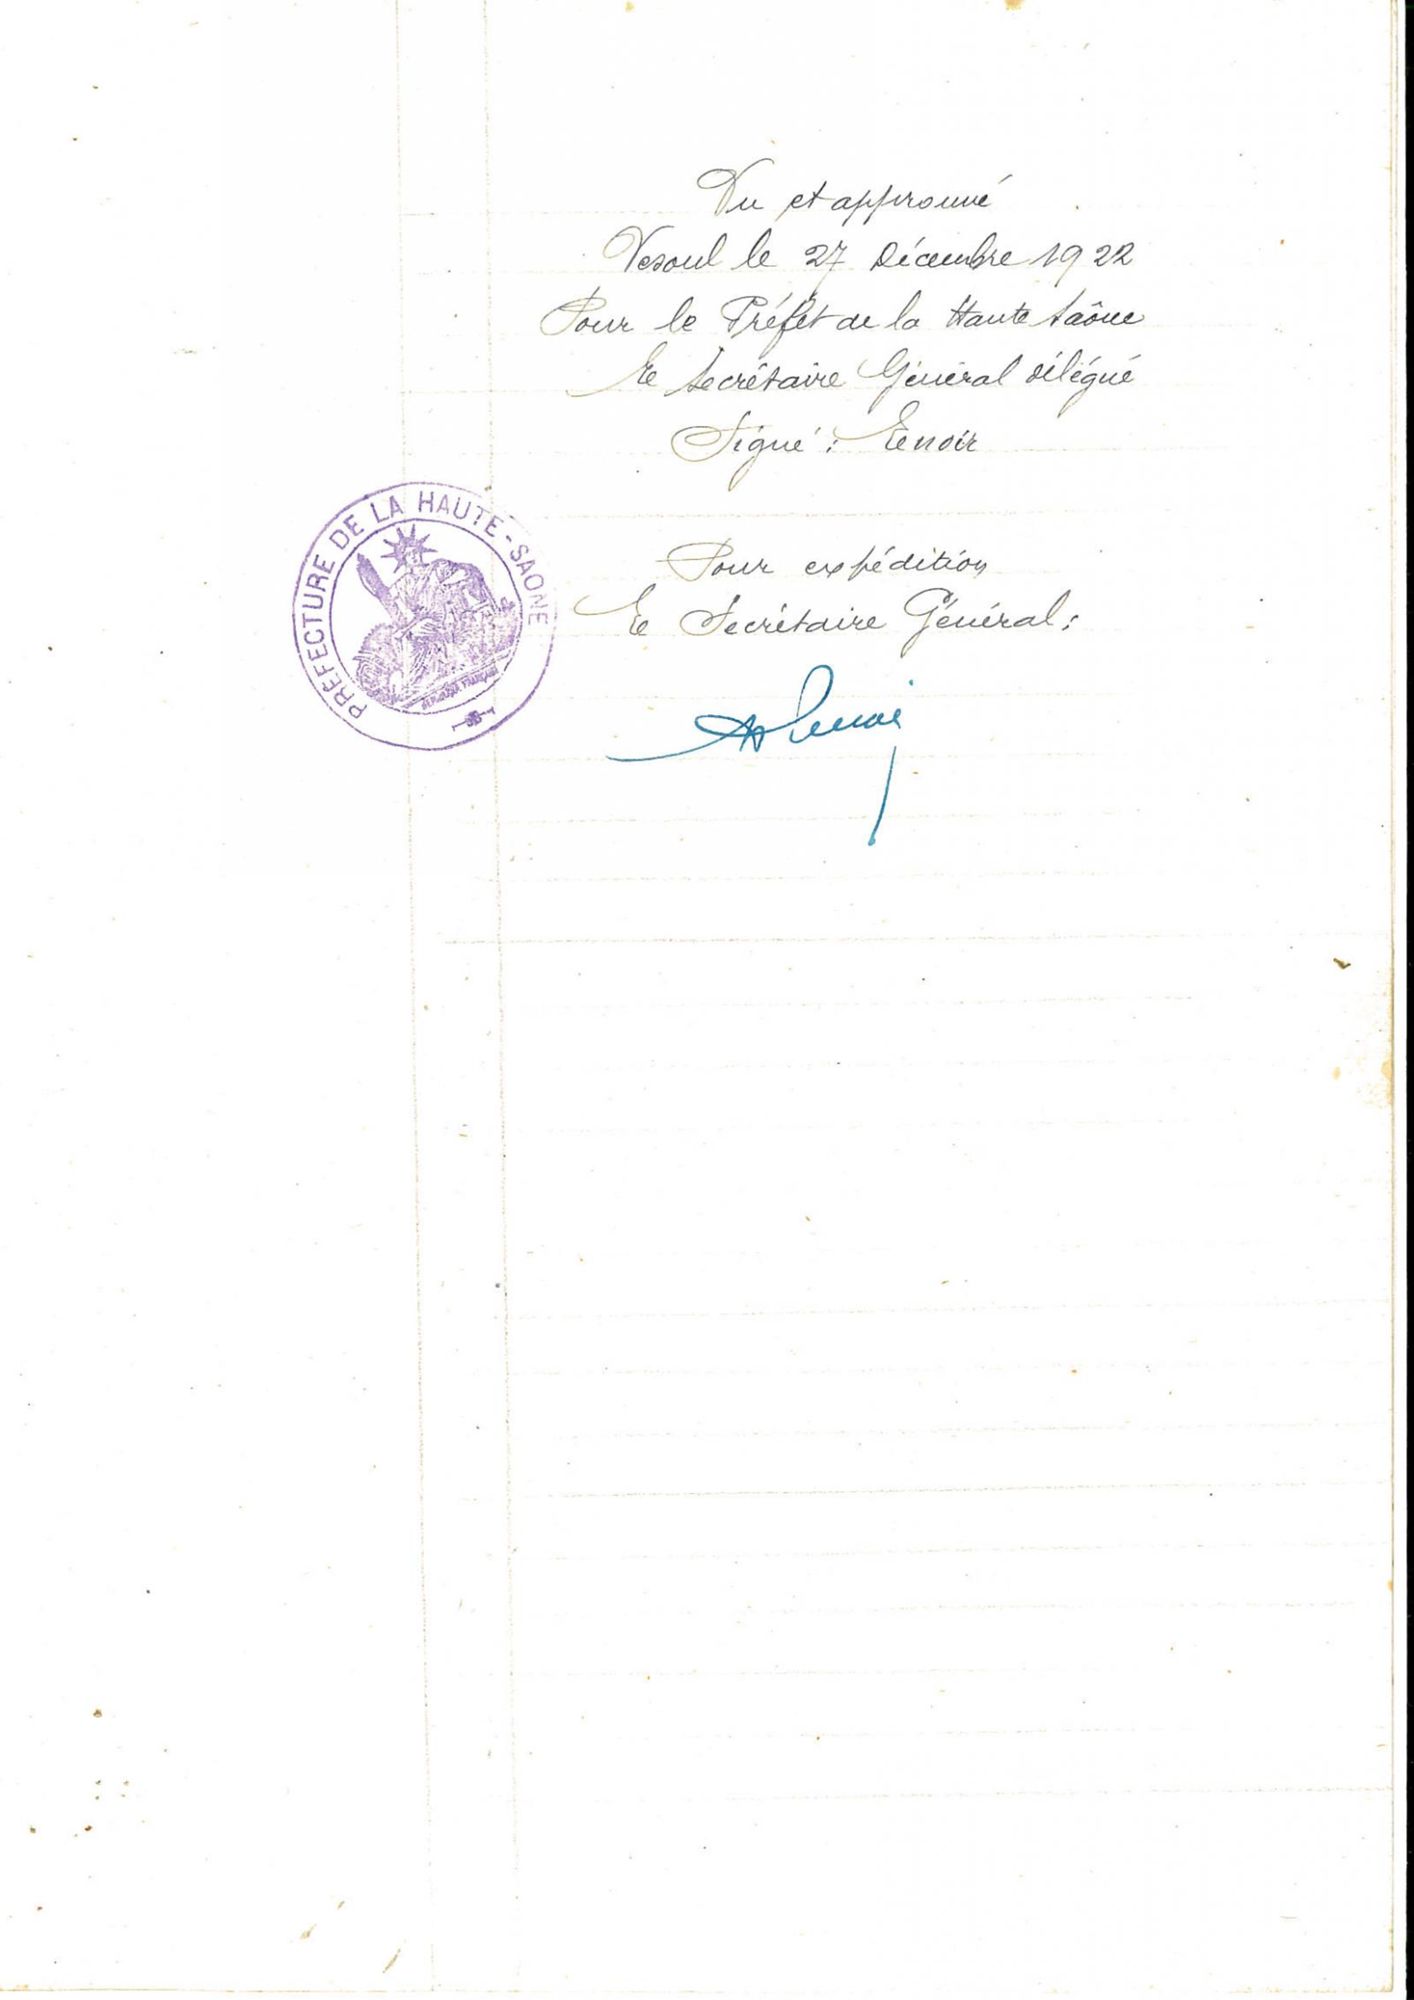 Vu et approuvé
Vesoul le 27 Décembre 1922
Pour le Préfet de la Haute Saône
Le Secrétaire Général délégué
Signé : Lenoir
PREFECTURE DE LA HAUTE-SAONE
REPUBLIQUE FRANÇAISE
Pour expédition
Le Secrétaire Général :
Lenoir